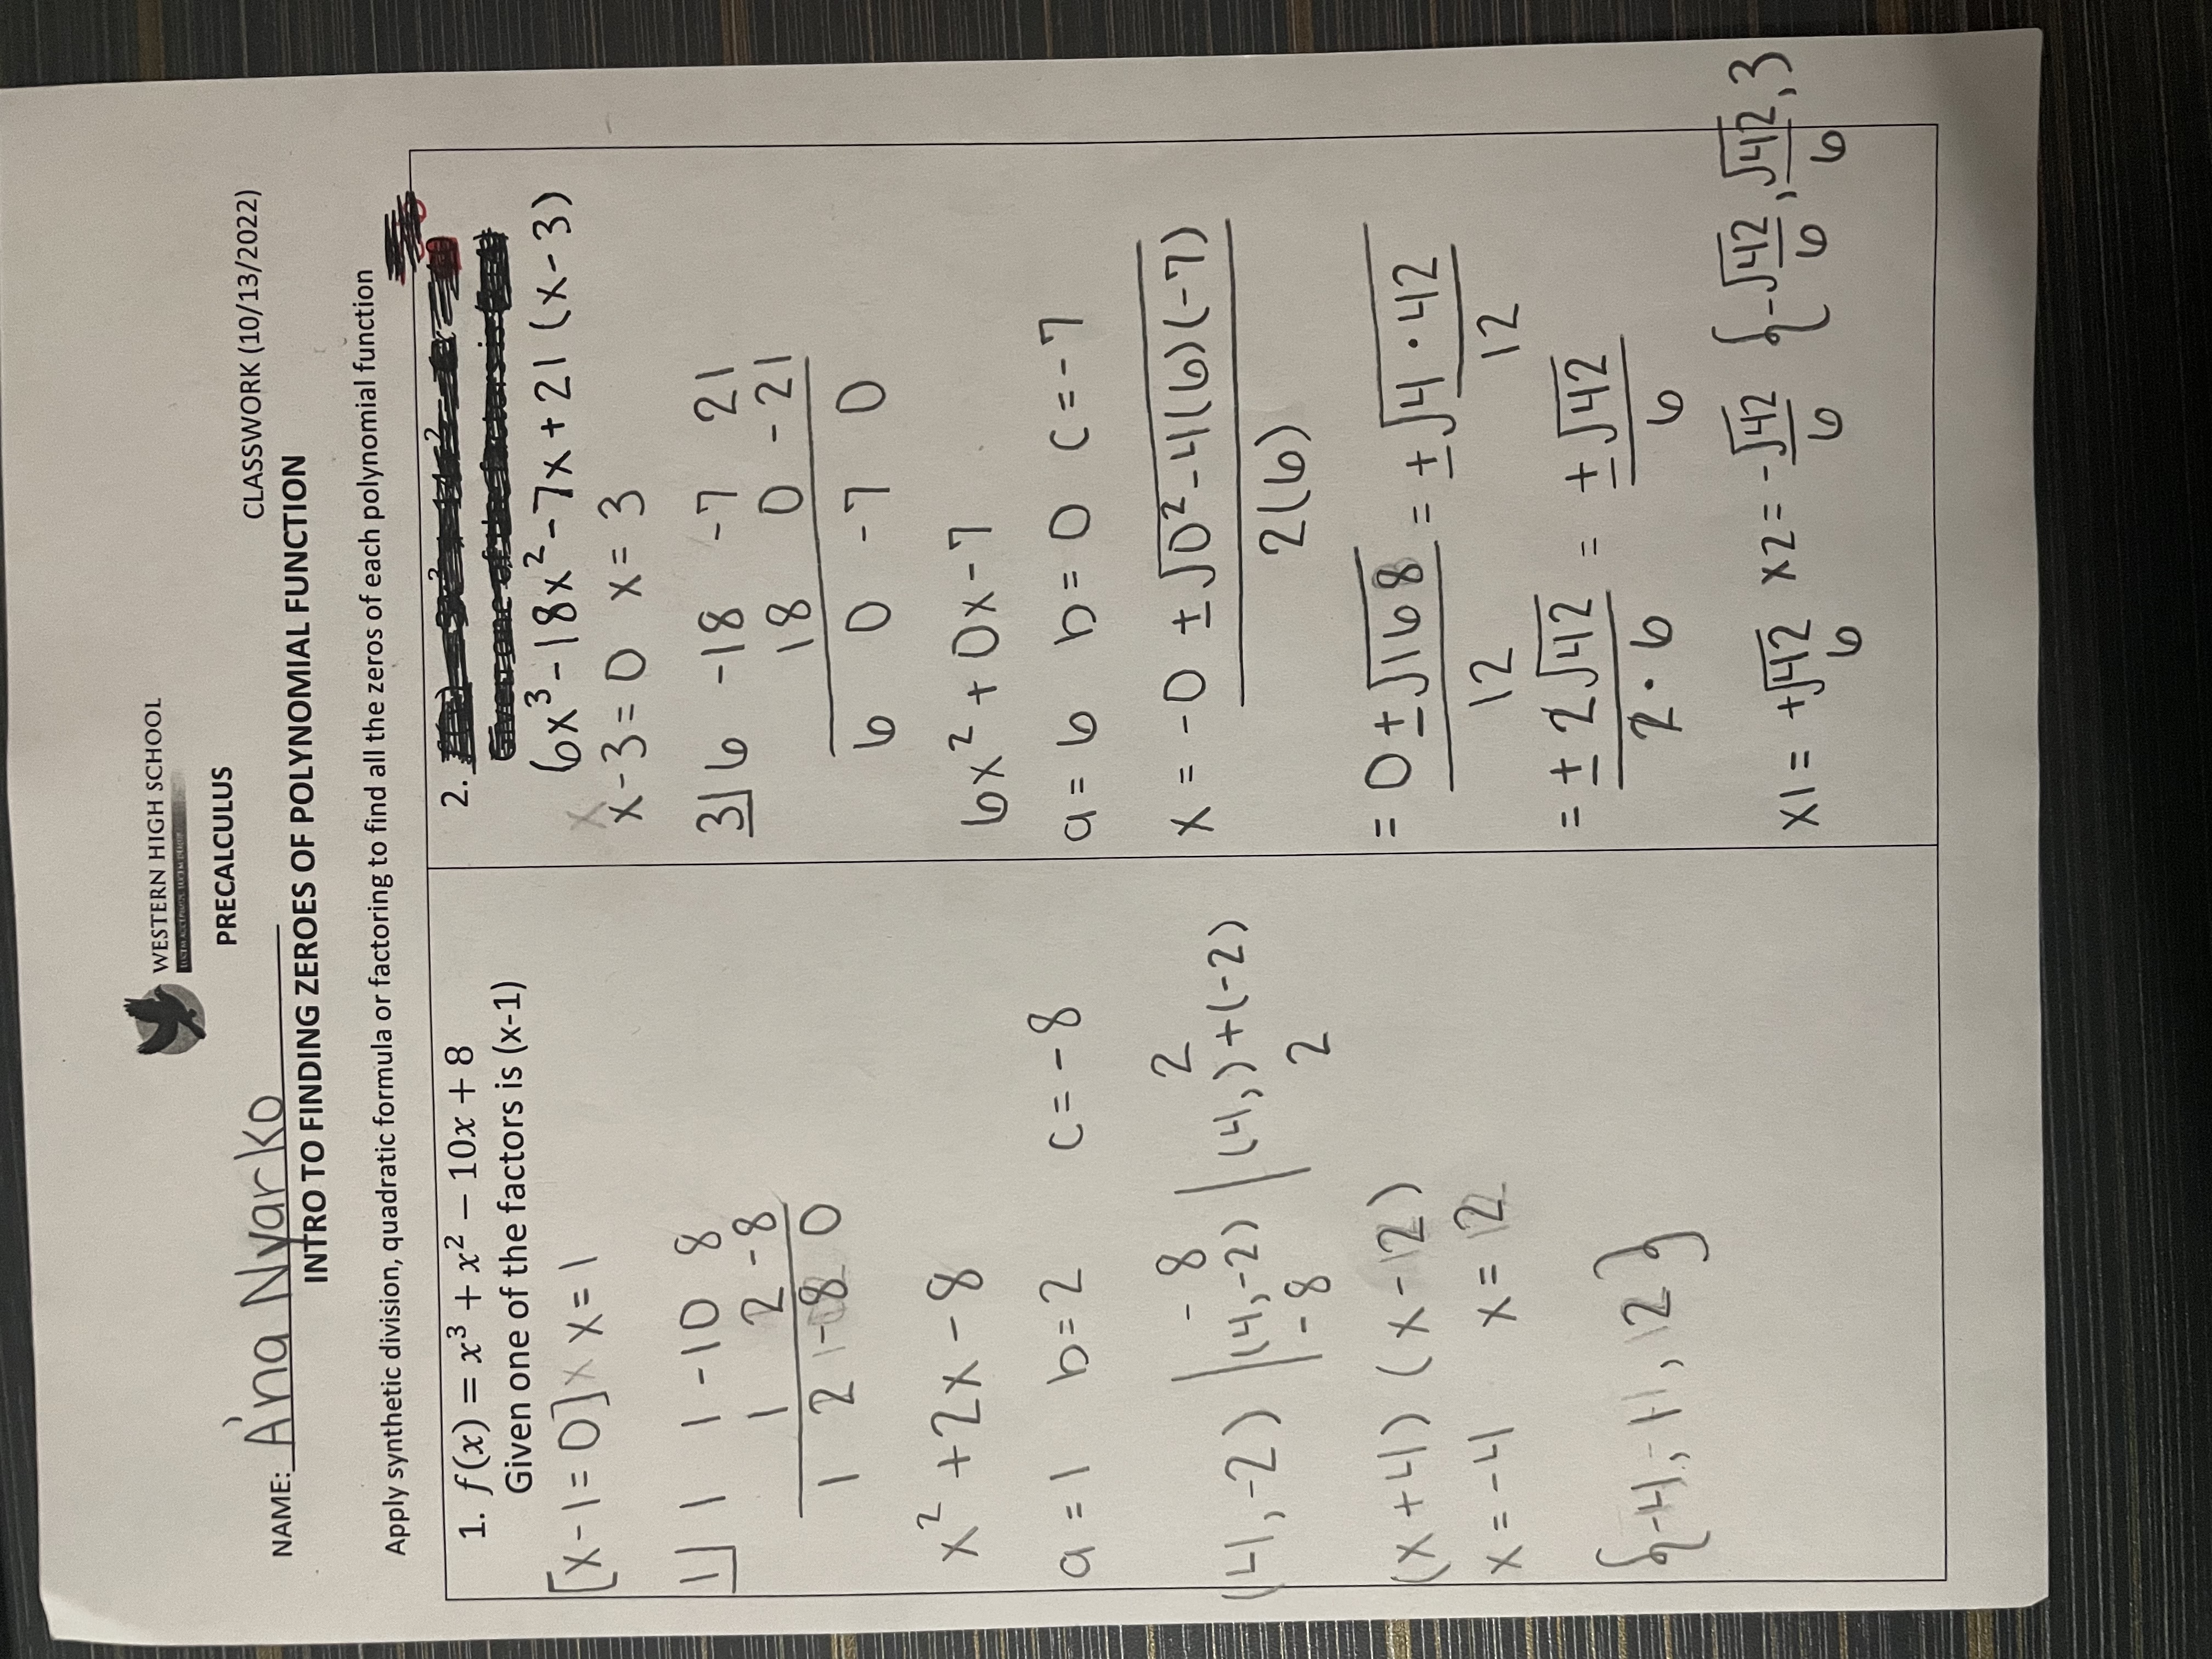 WESTERN HIGH SCHOOL
PRECALCULUS
NAME: A'na Nyarko CLASSWORK (10/13/2022)
INTRO TO FINDING ZEROES OF POLYNOMIAL FUNCTION
Apply synthetic division, quadratic formula or factoring to find all the zeros of each polynomial function
1. f(x) = x³ + x² − 10x + 8
Given one of the factors is (x-1)
[x-1=0] x x=1
1⌋ 1 1 -10 8
1 2 -8
1 2 -8 0
x² + 2x - 8
a = 1 b=2 c = -8
-8 2
(4,-2) (4,-2) (4,)+(-2)
-8 2
(x+4) (x-2)
x = -4 x = 2
{-4, 1, 2}
2.
6x³-18x²-7x+21 (x-3)
x-3=0 x=3
3⌋ 6 -18 -7 21
18 0 -21
6 0 -7 0
6x² + 0x - 7
a = 6 b = 0 c = -7
x = -0 ± √0²-4(6)(-7)
2(6)
= 0 ± √168 = ± √4·42
12 12
= ± 2√42 = ± √42
2·6 6
x1 = +√42 x2 = -√42 {-√42, √42, 3
6 6 6 6